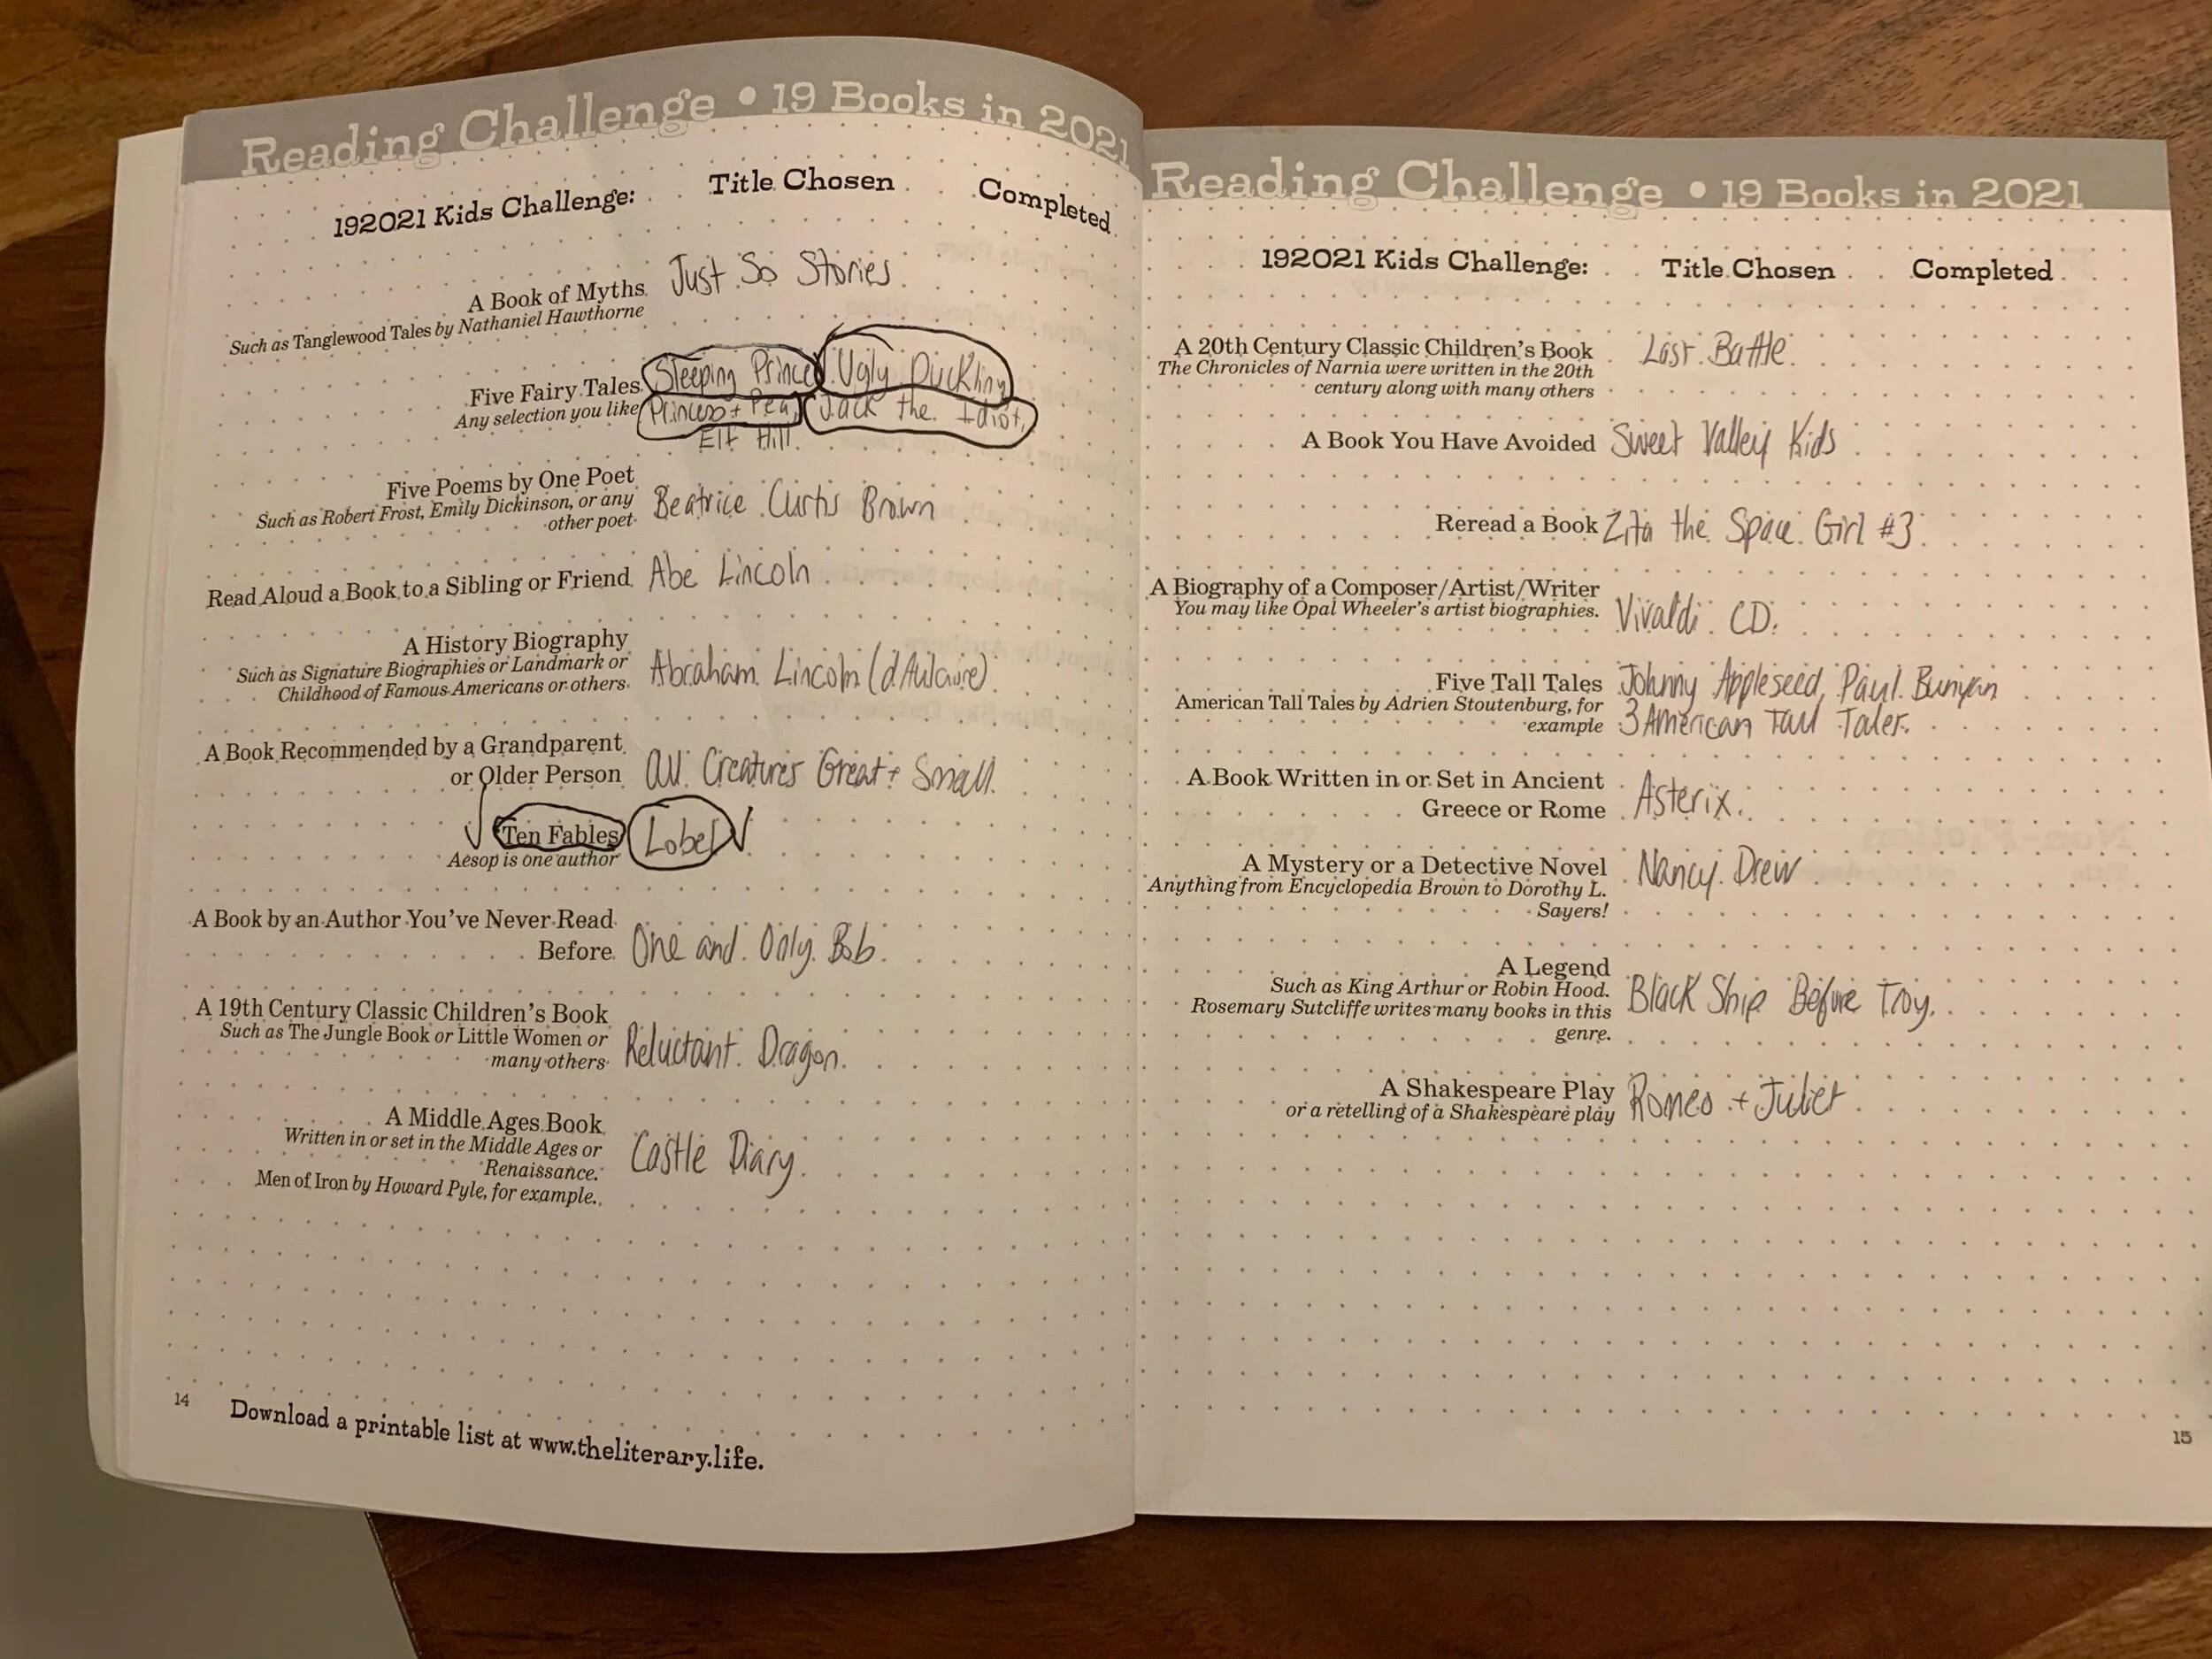 Reading Challenge • 19 Books in 2021
192021 Kids Challenge: Title Chosen Completed
A Book of Myths Just So Stories
Such as Tanglewood Tales by Nathaniel Hawthorne
Sleeping Prince Ugly Duckling
Five Fairy Tales
Any selection you like Princess + Pea, Jack the Idiot,
Elf Hill
Five Poems by One Poet
Such as Robert Frost, Emily Dickinson, or any
other poet
Beatrice Curtis Brown
Read Aloud a Book to a Sibling or Friend Abe Lincoln
A History Biography
Such as Signature Biographies or Landmark or
Childhood of Famous Americans or others.
Abraham Lincoln (d'Aulaire)
A Book Recommended by a Grandparent
or Older Person All Creatures Great + Small
Ten Fables Lobel
Aesop is one author
A Book by an Author You've Never Read
Before One and Only Bob
A 19th Century Classic Children's Book
Such as The Jungle Book or Little Women or
many others
Reluctant Dragon
A Middle Ages Book
Written in or set in the Middle Ages or
Renaissance.
Men of Iron by Howard Pyle, for example.
Castle Diary
14
Download a printable list at www.theliterary.life.
Reading Challenge • 19 Books in 2021
192021 Kids Challenge: Title Chosen Completed
A 20th Century Classic Children's Book Last Battle
The Chronicles of Narnia were written in the 20th
century along with many others
A Book You Have Avoided Sweet Valley Kids
Reread a Book Zita the Space Girl #3
A Biography of a Composer/Artist/Writer
You may like Opal Wheeler's artist biographies.
Vivaldi CD
Five Tall Tales Johnny Appleseed, Paul Bunyan
American Tall Tales by Adrien Stoutenburg, for
example 3 American Tall Tales
A Book Written in or Set in Ancient
Greece or Rome Asterix
A Mystery or a Detective Novel Nancy Drew
Anything from Encyclopedia Brown to Dorothy L.
Sayers!
A Legend
Such as King Arthur or Robin Hood.
Rosemary Sutcliffe writes many books in this
genre.
Black Ship Before Troy
A Shakespeare Play Romeo + Juliet
or a retelling of a Shakespeare play
15